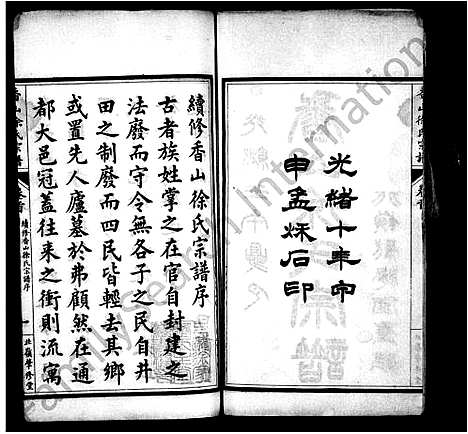 光緒十年甲
申孟秋石印
續修香山徐氏宗譜序
古者族姓掌之在官自封建之
法廢而守令無各子之民自井
田之制廢而四民皆輕去其鄉
或置先人廬墓於弗顧然在通
都大邑冠蓋往來之衝則流寓
香山徐氏宗譜
卷首
續修香山徐氏宗譜序
一
北嶺肇修堂
FamilySearch International